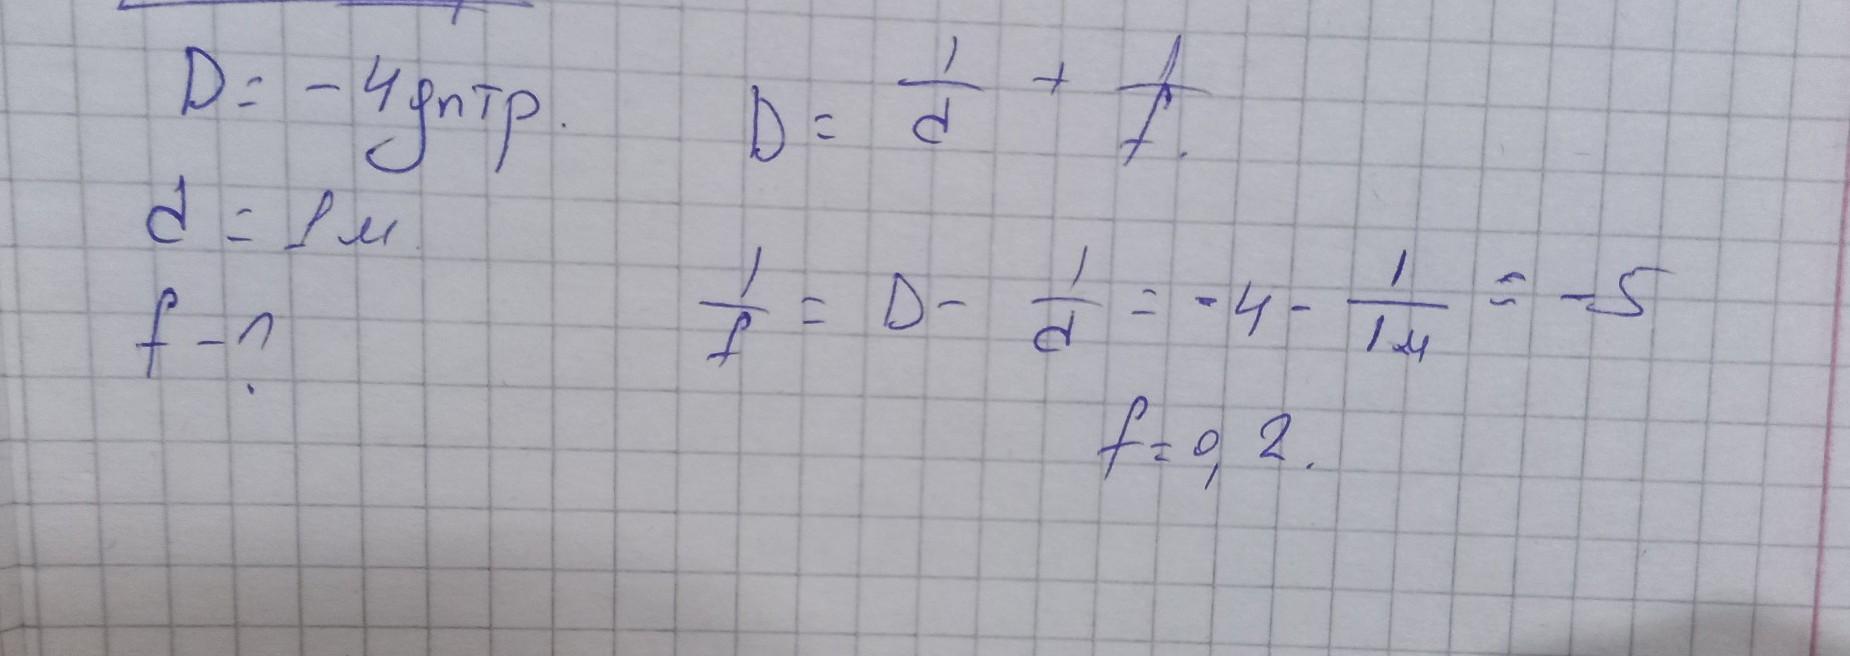 D = - 4 дптр.
d = 1 м.
f - ?
D = 1/d + 1/f.
1/f = D - 1/d = -4 - 1/1м = -5
f = 0,2.